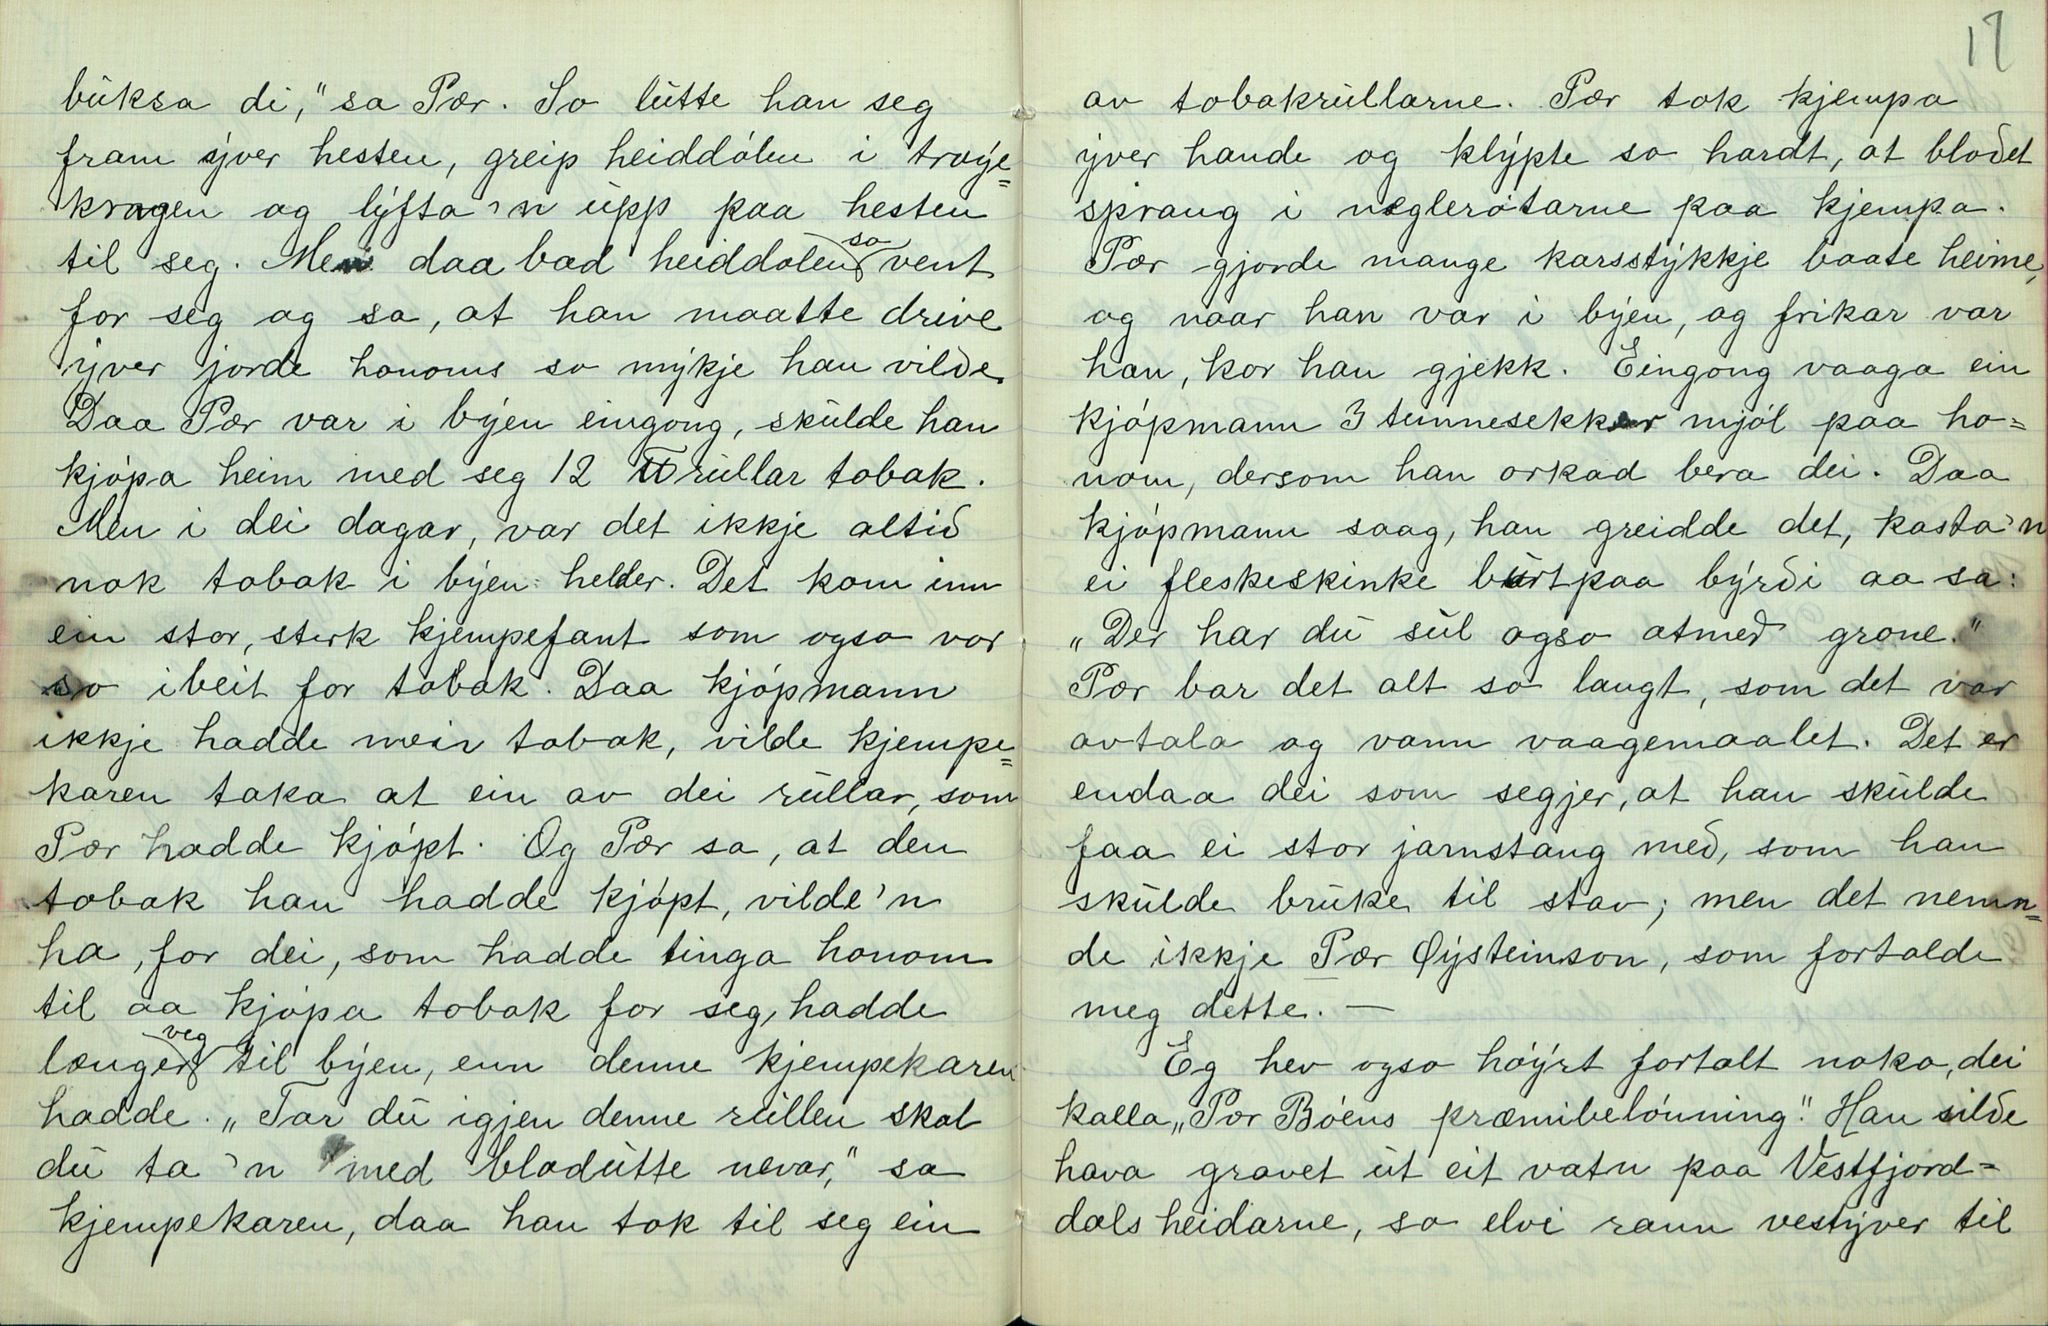 buksa di," sa Pær. So lutte han seg
fram yver hesten, greip heiddølen i trøye=
kragen og lyfta 'n upp paa hesten
til seg. Men daa bad heiddølen so vent
for seg og sa, at han maatte drive
yver jorde honoms so mykje han vilde.
Daa Pær var i byen eingong, skulde han
kjøpa heim med seg 12 ℔ rullar tobak.
Men i dei dagar, var det ikkje altid
nok tobak i byen helder. Det kom inn
ein stor, sterk kjempefant som ogso var
so ibeit for tobak. Daa kjøpmann
ikkje hadde meir tobak, vilde kjempe=
karen taka at ein av dei rullar, som
Pær hadde kjøpt. Og Pær sa, at den
tobak han hadde kjøpt, vilde'n
ha, for dei, som hadde tinga honom
til aa kjøpa tobak for seg, hadde
længer veg til byen, enn denne kjempekaren
hadde. „Tar du igjen denne rullen skal
du ta 'n med blodutte nevar," sa
kjempekaren, daa han tok til seg ein
17
av tobakrullarne. Pær tok kjempa
yver hande og klypte so hardt, at blodet
sprang i neglerøtarne paa kjempa.
Pær gjorde mange karsstykkje baate heime,
og naar han var i byen, og frikar var
han, kor han gjekk. Eingong vaaga ein
kjøpmann 3 tunnesekker mjøl paa ho=
nom, dersom han orkad bera dei. Daa
kjøpmann saag, han greidde det, kasta 'n
ei fleskeskinke burtpaa byrdi aa sa:
„Der har du sul ogso atmed grone."
Pær bar det alt so langt, som det var
avtala og vann vaagemaalet. Det er
endaa dei som segjer, at han skulde
faa ei stor jarnstang med, som han
skulde bruke til stav; men det nemn=
de ikkje Pær Øysteinson, som fortalde
meg dette. —
Eg hev ogso høyrt fortalt noko, dei
kalla „Pær Bøens præmibelønning". Han silde
hava gravet ut eit vatn paa Vestfjord=
dals heidarne, so elvi rann vestyver til